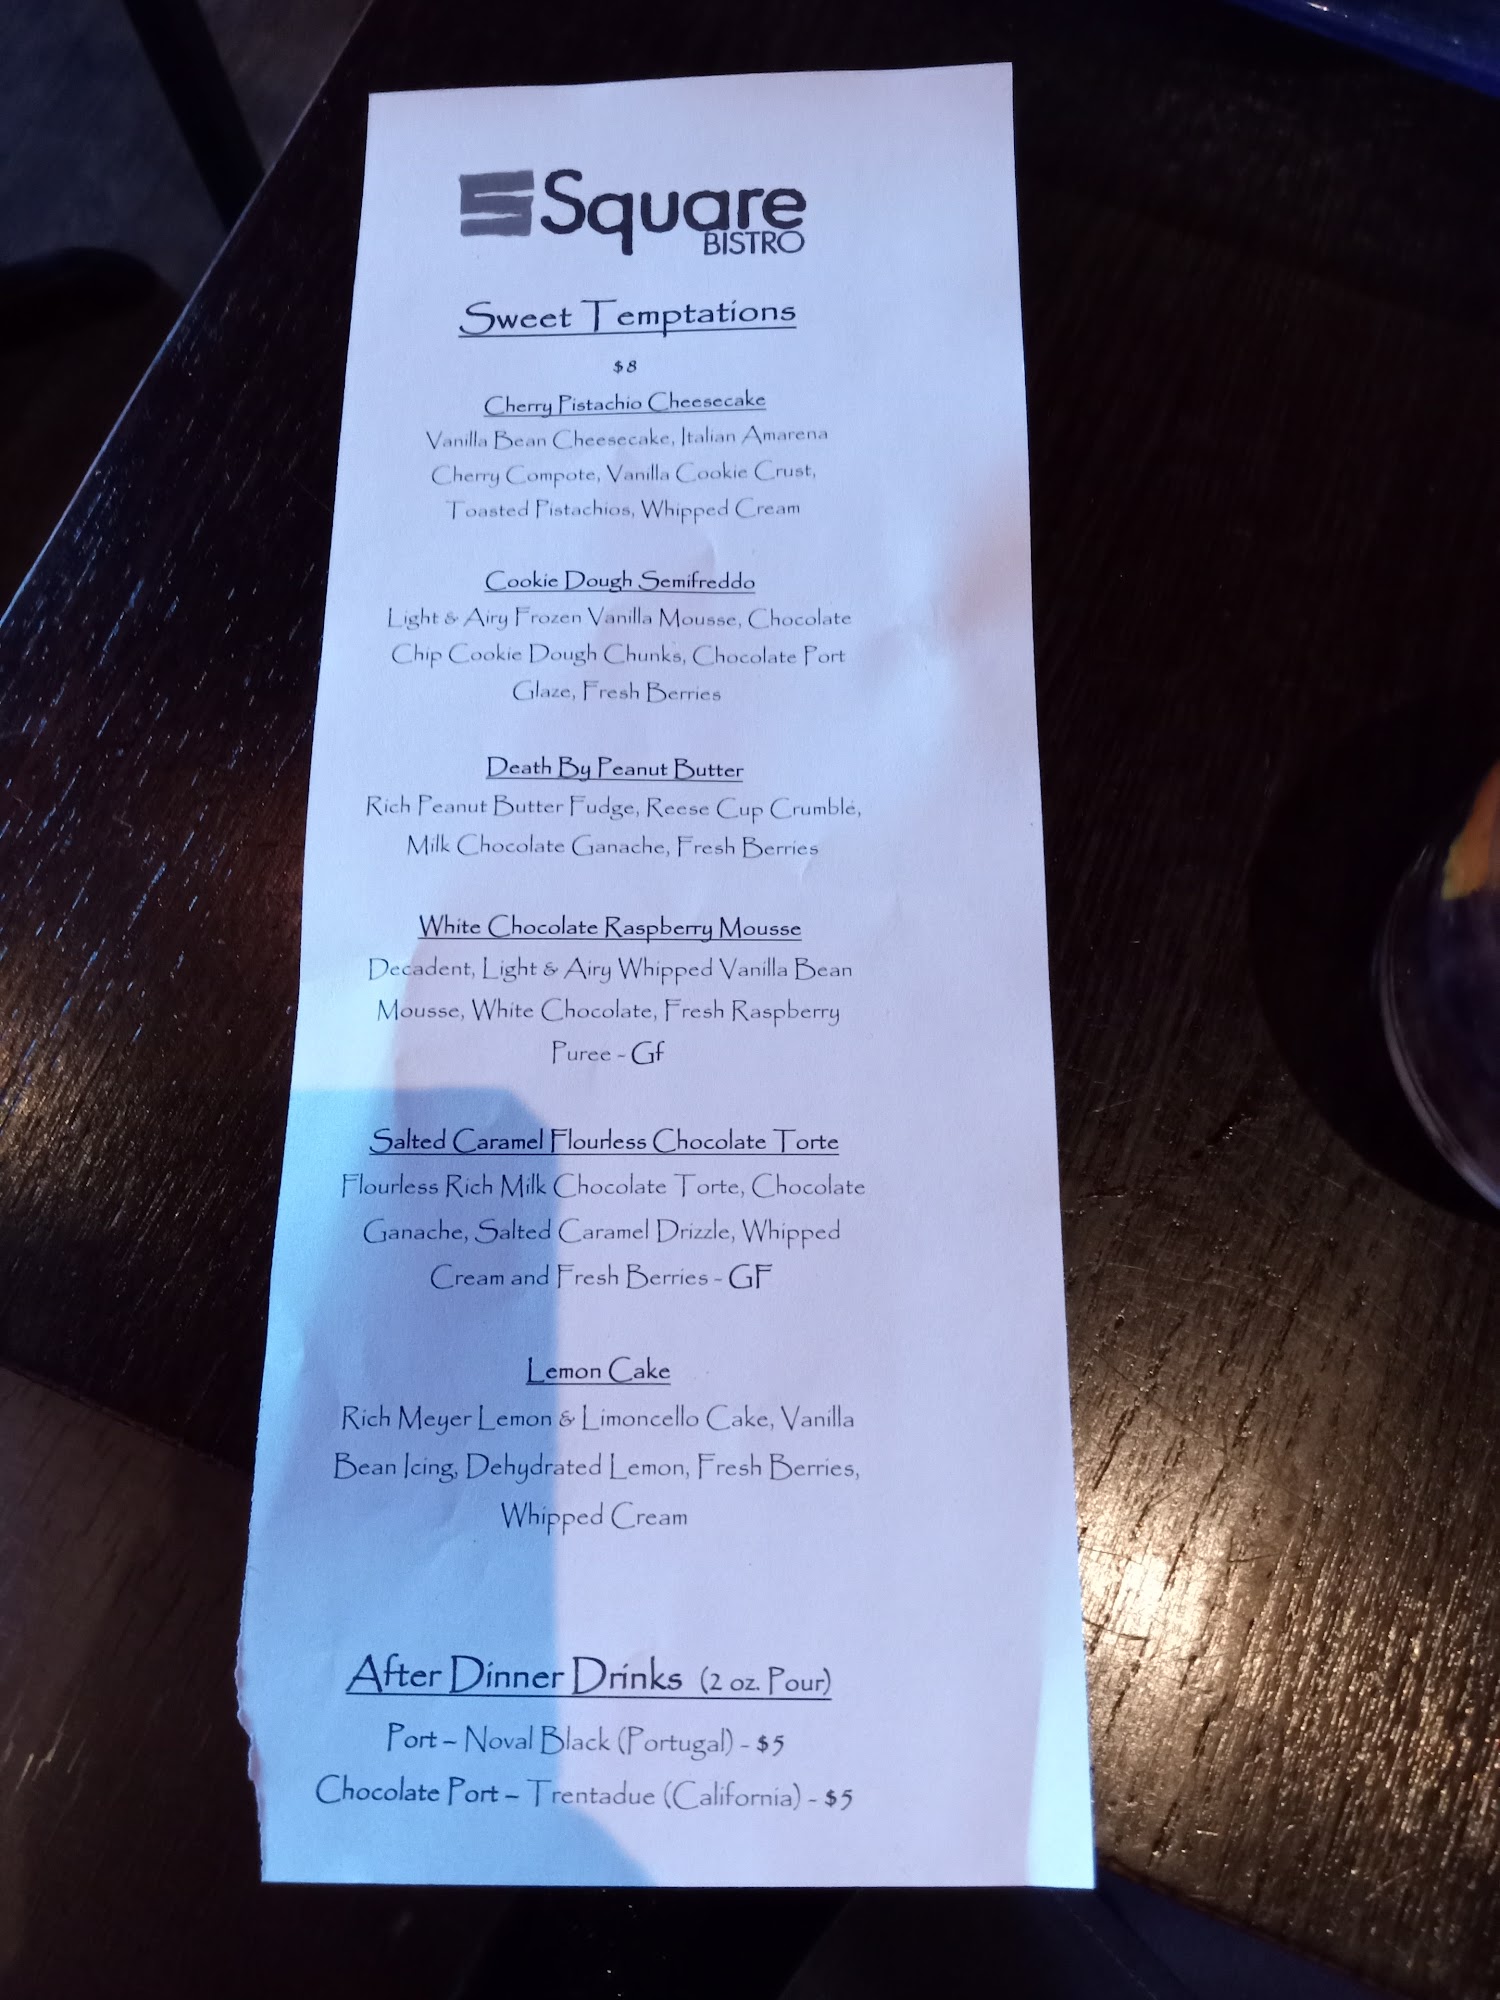 Square
BISTRO
Sweet Temptations
$8
Cherry Pistachio Cheesecake
Vanilla Bean Cheesecake, Italian Amarena
Cherry Compote, Vanilla Cookie Crust,
Toasted Pistachios, Whipped Cream
Cookie Dough Semifreddo
Light & Airy Frozen Vanilla Mousse, Chocolate
Chip Cookie Dough Chunks, Chocolate Port
Glaze, Fresh Berries
Death By Peanut Butter
Rich Peanut Butter Fudge, Reese Cup Crumble,
Milk Chocolate Ganache, Fresh Berries
White Chocolate Raspberry Mousse
Decadent, Light & Airy Whipped Vanilla Bean
Mousse, White Chocolate, Fresh Raspberry
Puree - Gf
Salted Caramel Flourless Chocolate Torte
Flourless Rich Milk Chocolate Torte, Chocolate
Ganache, Salted Caramel Drizzle, Whipped
Cream and Fresh Berries - GF
Lemon Cake
Rich Meyer Lemon & Limoncello Cake, Vanilla
Bean Icing, Dehydrated Lemon, Fresh Berries,
Whipped Cream
After Dinner Drinks (2 oz. Pour)
Port – Noval Black (Portugal) - $5
Chocolate Port – Trentadue (California) - $5